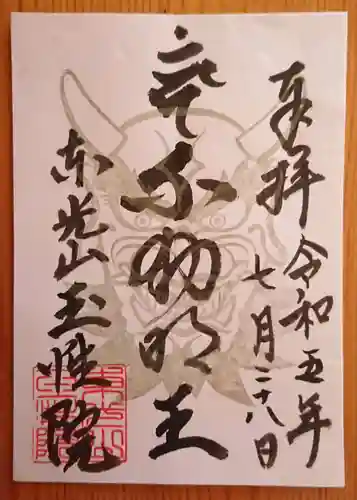 奉拝
令和五年
七月二十八日
不動明王
東光山
玉性院